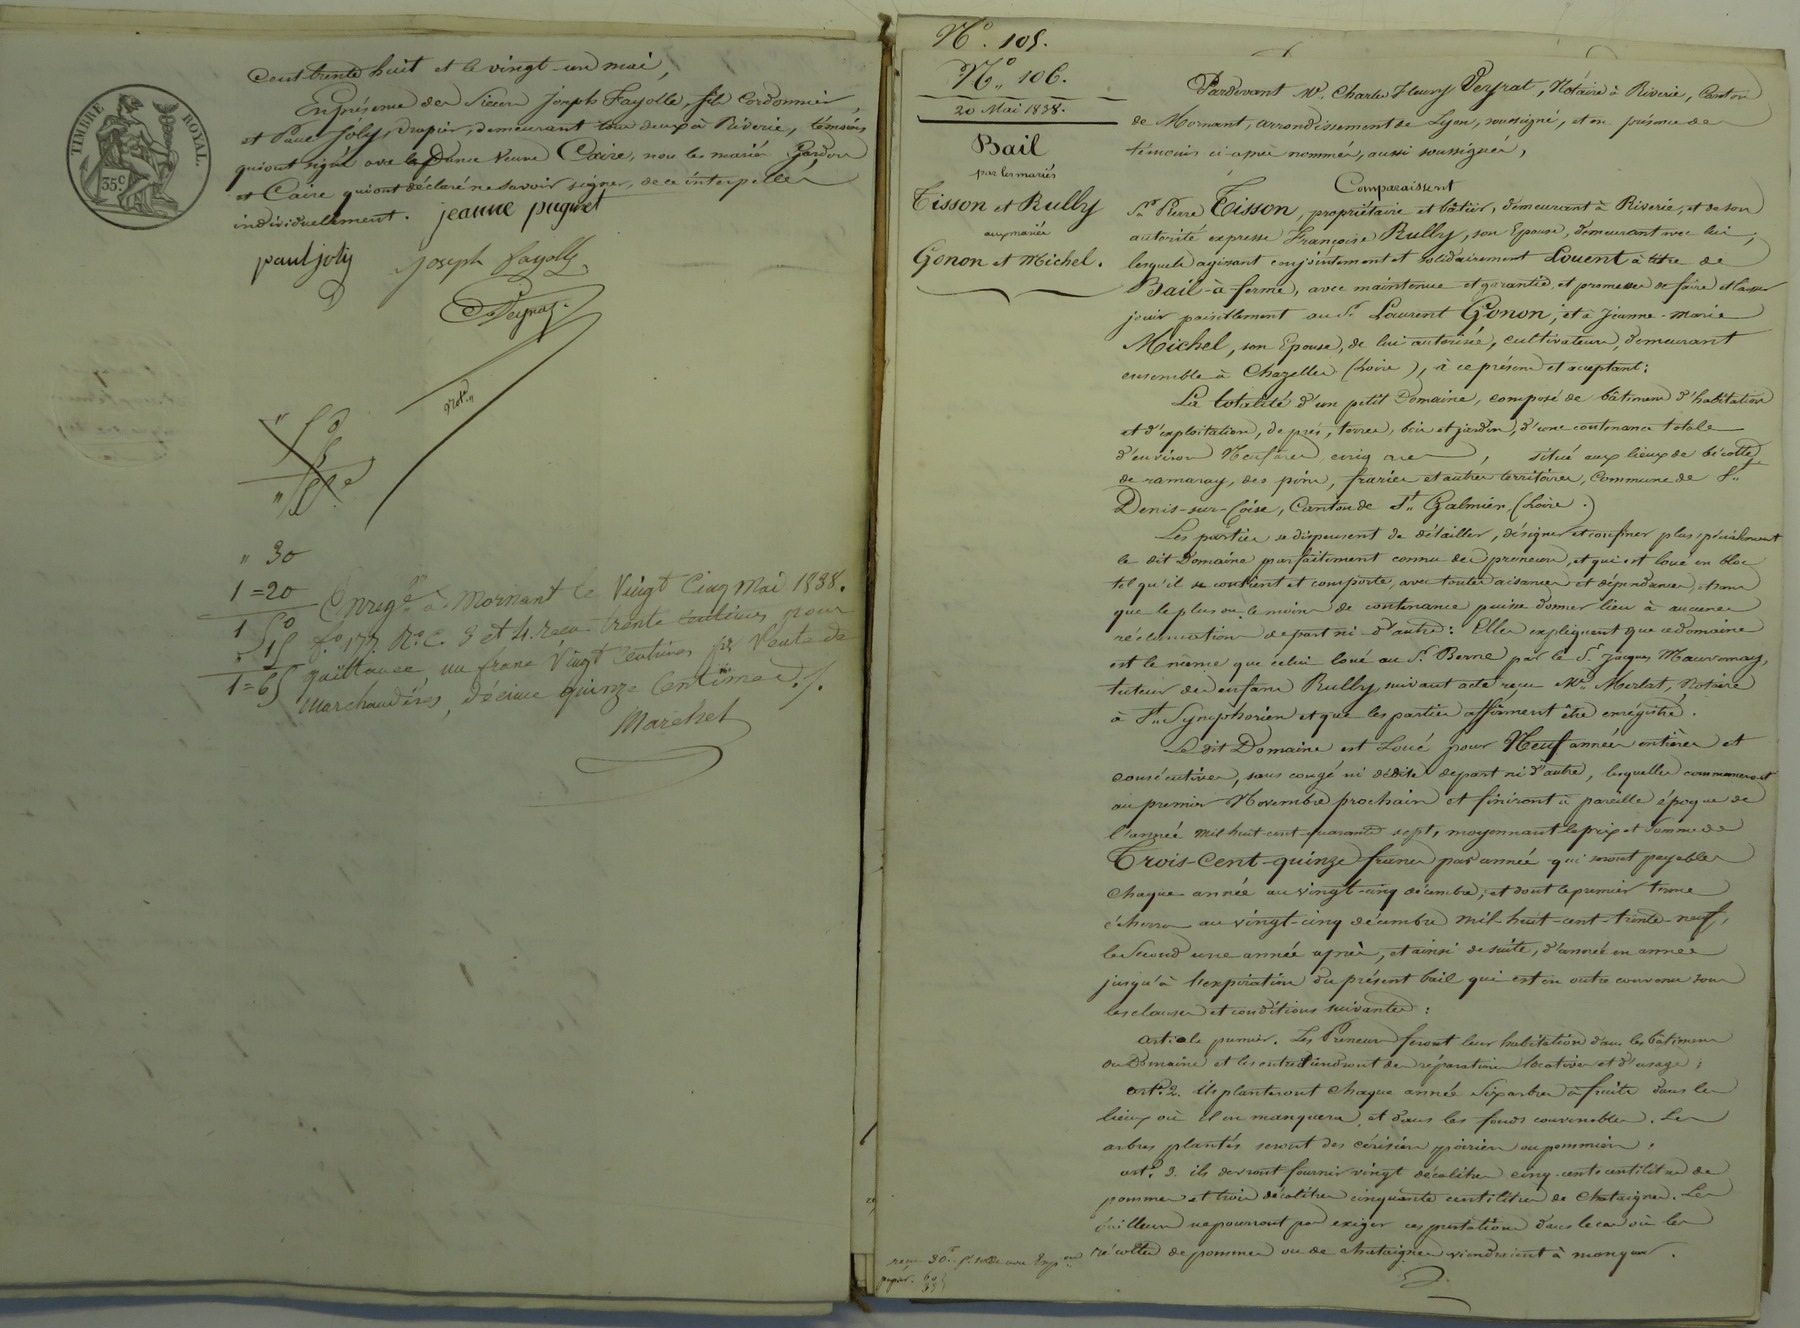 Cent trente huit et le vingt un mai,
En présence des Sieurs Joseph Fayolle, fils Cordonnier,
et Paul Joly, drapier, demeurant tous deux à Riverie, témoins
qui ont signé avec la Dame Veuve Caire, non les mariés Gardon
et Caire qui ont déclaré ne savoir signer, de ce interpellés
individuellement.
TIMBRE ROYAL.
35c
jeanne puginet
paul joly
joseph fayolle
Peyrat
not.re
" 30
1 = 20
1 50
" 15
1 = 65
Enreg. à Mornant le Vingt Cinq Mai 1838.
f.o 177. R.o C. 3 et 4. reçu trente centimes pour
quittance, un franc Vingt Centimes pr Vente de
marchandises, décime quinze Centimes ./.
Marchet
N.o 105.
N.o 106.
20 Mai 1838.
Bail
par les mariés
Tisson et Rully
aux mariés
Gonon et Michel.
Pardevant Me. Charles Fleury Peyrat, Notaire à Riverie, Canton
de Mornant, arrondissement de Lyon, soussigné, et en présence des
témoins ci-après nommés, aussi soussignés,
Comparaissent
Sr. Pierre Tisson, propriétaire et bâtier, demeurant à Riverie, et de son
autorité expresse Françoise Rully, son Epouse, demeurant avec lui,
lesquels agissant conjointement et solidairement Louent à titre de
Bail-à-ferme, avec maintenue et garantie, et promesse de faire et laisser
jouir paisiblement au Sr. Laurent Gonon, et à Jeanne-Marie
Michel, son Epouse, de lui autorisée, cultivateurs, demeurant
ensemble à Chazelles (Loire), à ce présens et acceptant:
La totalité d'un petit Domaine, composé de bâtimens d'habitation
et d'exploitation, de prés, terres, bois et jardin, d'une contenance totale
d'environ Neuf ares cinq ares, situé aux lieux de
de ramaray, des pins, frarier et autres territoires, Commune de St.
Denis-sur-Coise, Canton de St. Galmier, (Loire.)
Les parties se dispensent de détailler, désigner et confiner plus spécialement
le dit Domaine parfaitement connu des preneurs, et qui est loué en bloc
tel qu'il se contient et comporte, avec toutes aisances et dépendances, et sans
que le plus ou le moins de contenance puisse donner lieu à aucune
réclamation de part ni d'autre: Elles expliquent que ce domaine
est le même que celui loué au Sr. Berne par le Sr. Jacques
tuteur des enfans Rully, suivant acte reçu Me. Merlat, Notaire
à St. Symphorien et que les parties affirment être enrégistré.
Le dit Domaine est Loué pour Neuf années entières et
consécutives, sans congé ni dédite de part ni d'autre, lesquelles commenceront
au premier Novembre prochain et finiront à pareille époque de
l'année mil huit cent quarante sept, moyennant le prix et somme de
Trois-Cent-quinze francs par année qui seront payables
chaque année au vingt-cinq décembre, et dont le premier terme
écherra au vingt-cinq décembre mil-huit-cent-trente-neuf,
le Second une année après, et ainsi de suite, d'année en année
jusqu'à l'expiration du présent bail qui est en outre convenu sous
les clauses et conditions suivantes:
article premier. Les Preneurs feront leur habitation dans les bâtimens
du Domaine et les entretiendront des réparations locatives et d'usage;
art. 2. ils planteront chaque année Six arbres à fruits dans les
lieux où il en manquera et dans les fonds convenables. Les
arbres plantés seront des cérisiers poiriers ou pommiers.
art. 3. ils devront fournir vingt décalitres cinq cents centilitres de
pommes et trois décalitres cinquante centilitres de chataignes. Les
bailleurs ne pourront pas exiger ces prestations dans le cas où les
récoltes de pommes ou de chataignes viendraient à manquer.